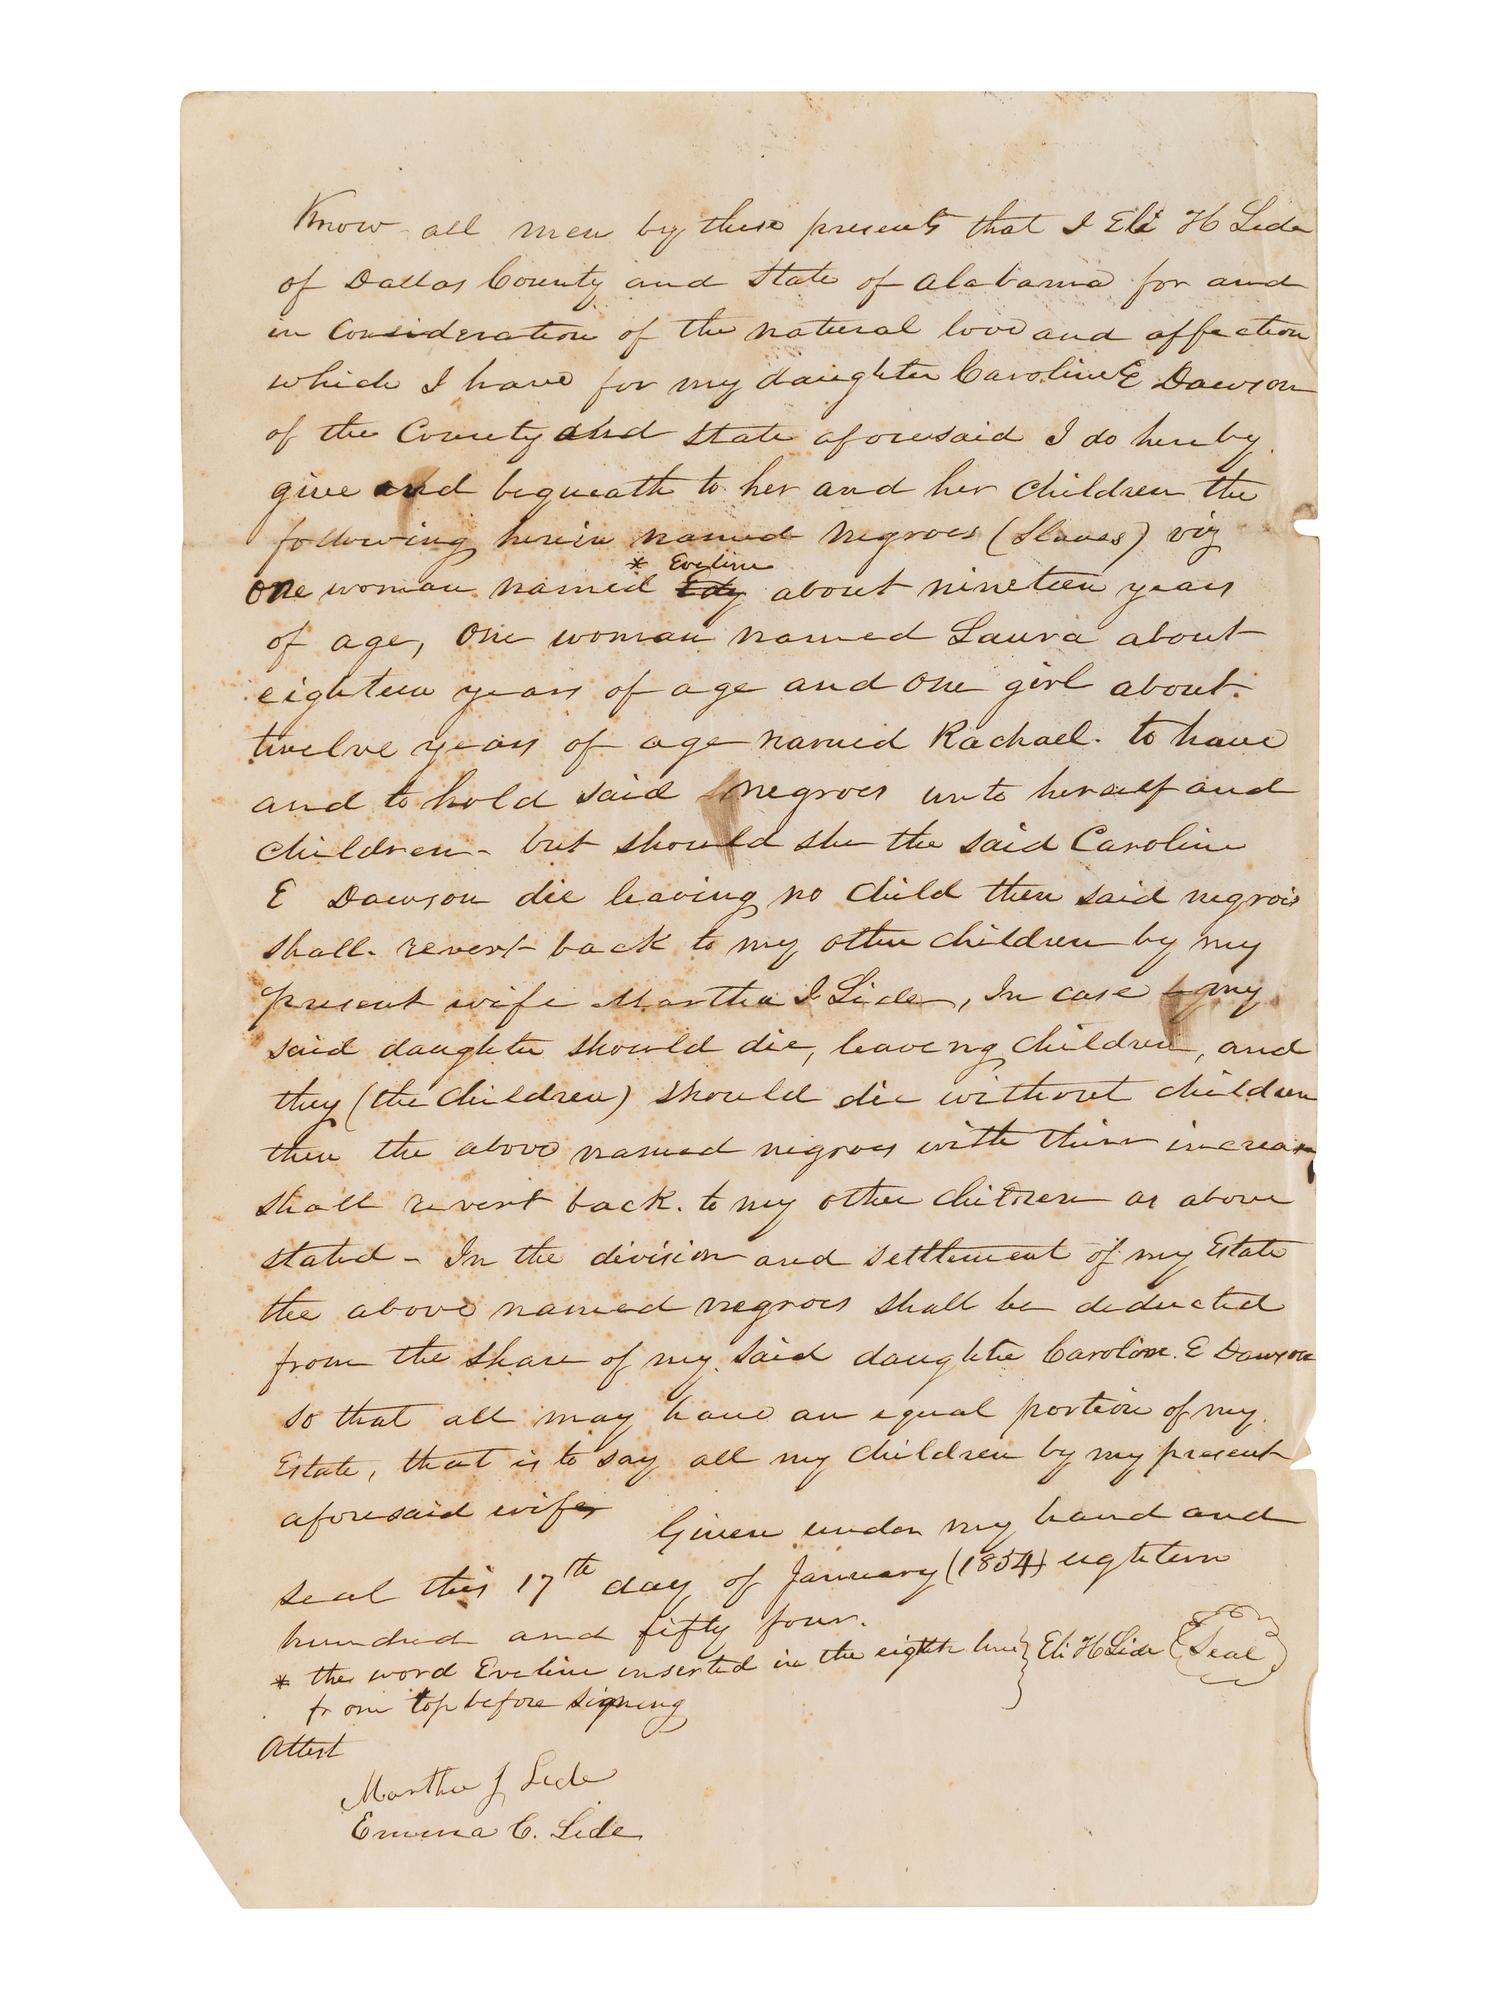 Know all men by these presents that I Eli H Lide
of Dallas County and State of Alabama for and
in consideration of the natural love and affection
which I have for my daughter Caroline E Dawson
of the County and State aforesaid I do hereby
give and bequeath to her and her children the
following herein named negroes (Slaves) viz
* Eveline
One woman named Edy about nineteen years
of age, One woman named Laura about
eighteen years of age and One girl about
twelve years of age named Rachael. to have
and to hold said negroes unto herself and
children - but should she the said Caroline
E Dawson die leaving no Child then said negroes
shall revert back to my other children by my
present wife Martha J Lide, In case my
said daughter should die, leaveng children, and
they (the children) should die without children
then the above named negroes with their increase
shall revert back. to my other children as above
stated - In the division and settlement of my Estate
the above named negroes shall be deducted
from the share of my said daughter Caroline. E Dawson
so that all may have an equal portion of my
Estate, that is to say all my children by my present
aforesaid wife
Given under my hand and
seal this 17th day of January (1854) eighteen
hundred and fifty four.
* the word Eveline inserted in the eighth line } Eli H Lide {Seal}
from top before signing
Attest
Martha J Lide
Emma C. Lide